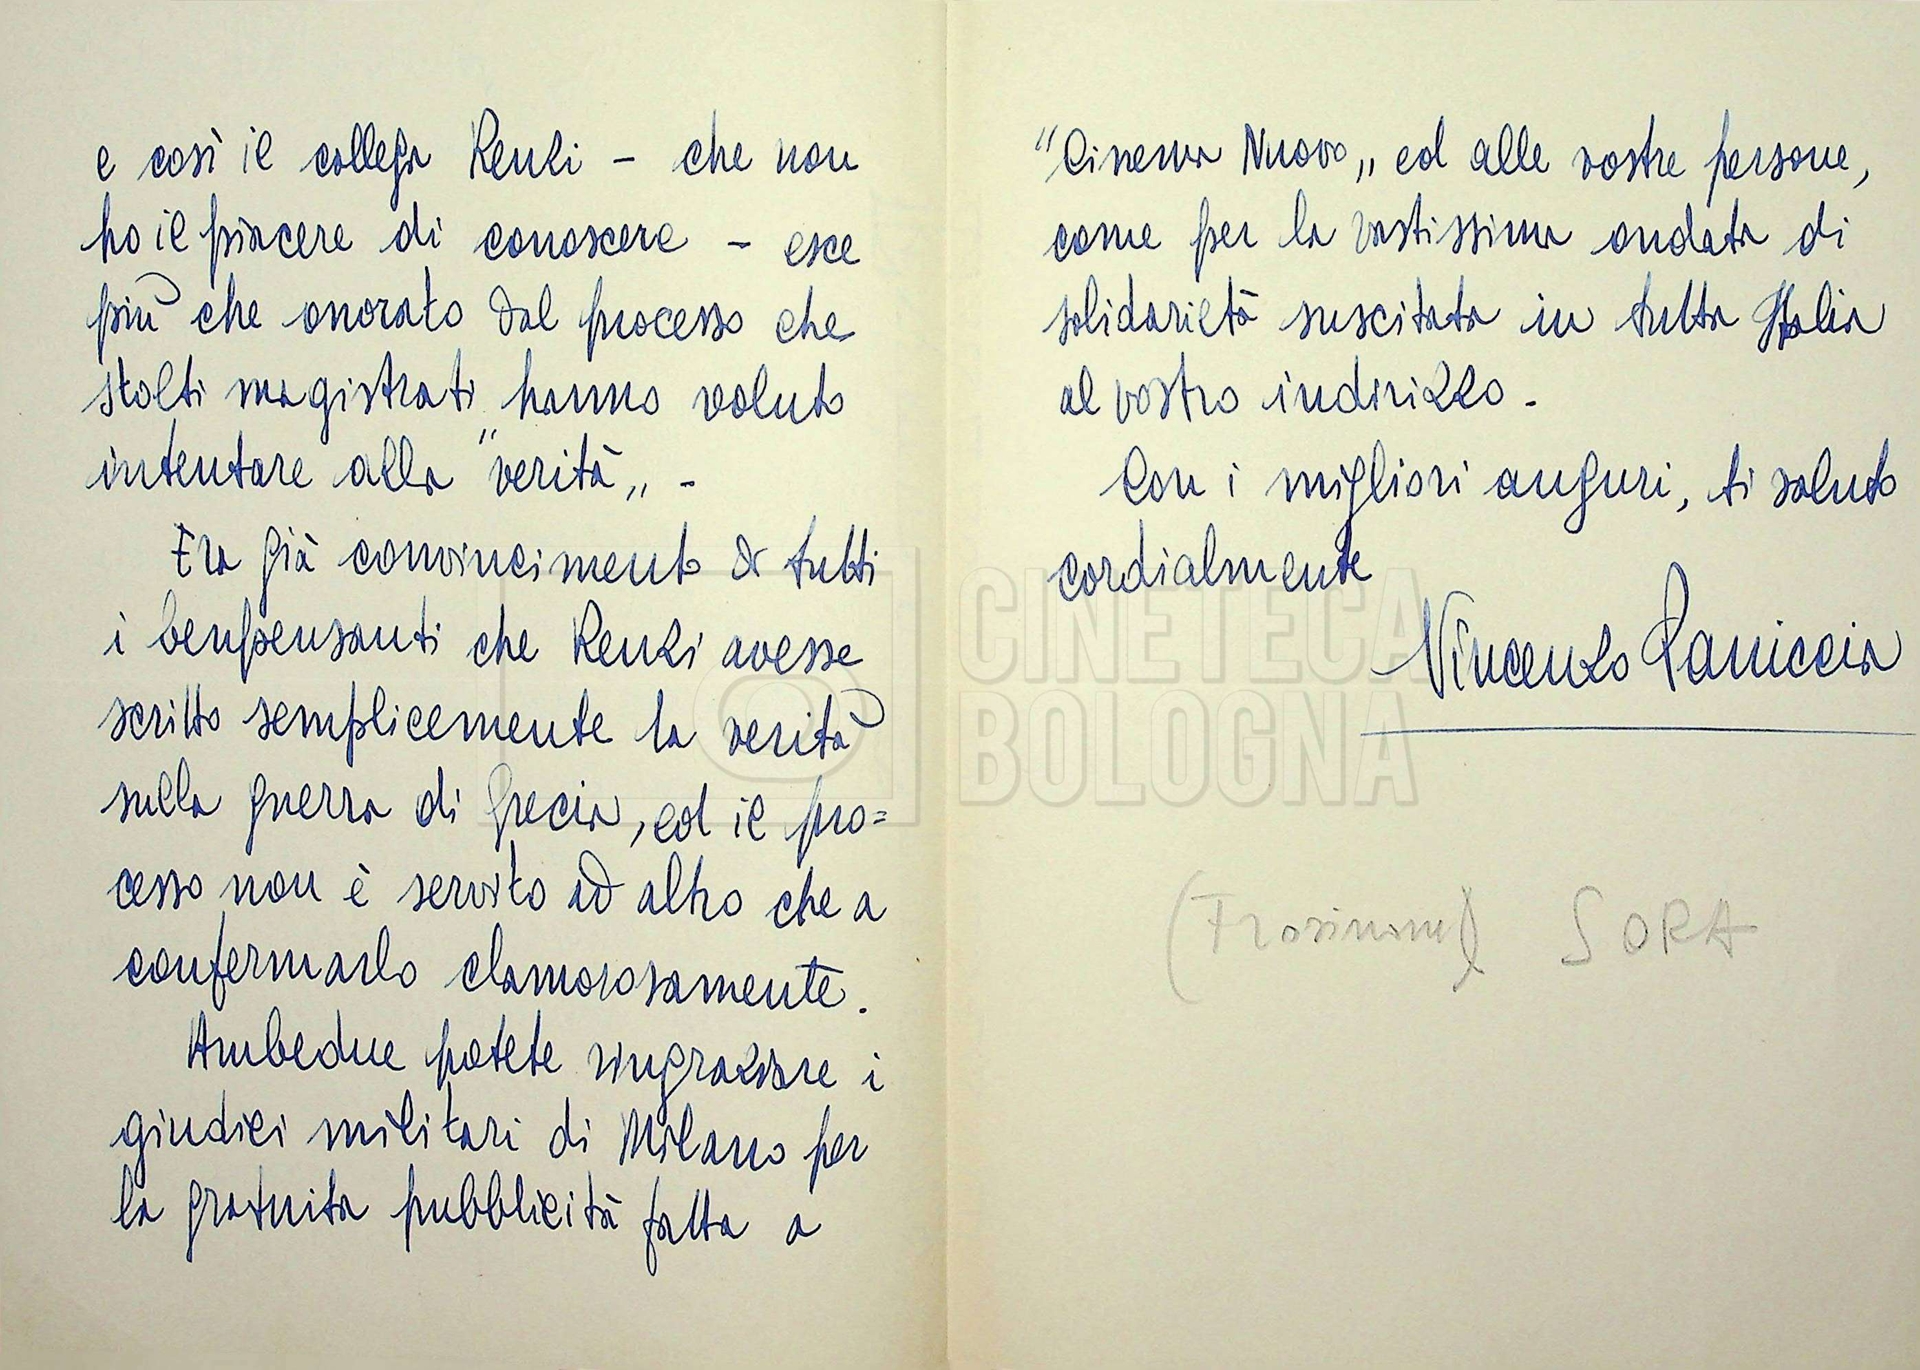 e così il collega Renzi - che non
ho il piacere di conoscere - esce
più che onorato dal processo che
stolti magistrati hanno voluto
intentare alla "verità„ -
Era già convincimento di tutti
i benpensanti che Renzi avesse
scritto semplicemente la verità
sulla guerra di Grecia, ed il pro=
cesso non è servito ad altro che a
confermarlo clamorosamente.
Ambedue potete ringraziare i
giudici militari di Milano per
la gratuita pubblicità fatta a
"Cinema Nuovo„ ed alle vostre persone,
come per la vastissima ondata di
solidarietà suscitata in tutta Italia
al vostro indirizzo -
Con i migliori auguri, ti saluto
cordialmente
Vincenzo Paniccia
(Frosinone) SORA
CINETECA
BOLOGNA